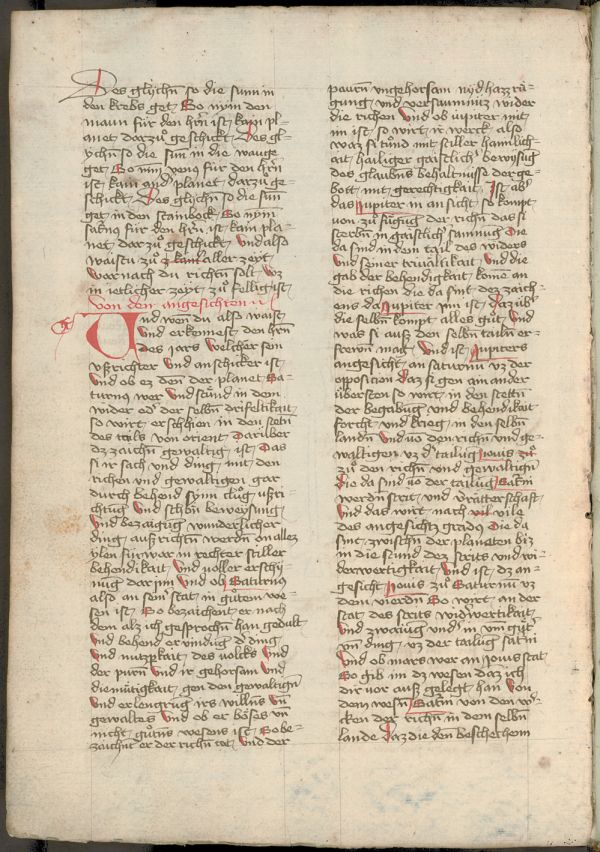 Des glychn so die sunn in
den krebs get · So nym den
maun für den hrn ist kain pl-
anet darzu geschickt · Des gl-
ychn so die sun in die wauge
get · So nim venus für den hrn
ist kain ander planet darzu ge-
schickt · Des glychn so die sun
get in den stainbock · So nym
satnus für den hrn ist kain pla-
net dar zu geschickt · Und also
waistu zu aller zeyt
war nach du richtn solt · vz
in ietlicher zeyt zu felligist ·
Von den angesichten
Und wen du also waist
und erkennest den hrn
des iars welcher sein
vßrichter und anschicker ist
und ob ez den der planet Sa-
turnus wer und stund in dem
wider oder der selbn drifeltikait
so wirt erschhien in den stetn
des tails von orient · Dariber
dz zaichn gewaltig ist · Das
si ir sach und ding mit den
richen und gewaltigen gar
durch behend synn clug ußri
chtug und schon beweysung
und bezaigug wunderlicher
ding auß richtn werdn on allez
ylen für war in rechter stiller
behendikait und voller erschy
nug dar inn und ob Saturnus
also an sem stat in gutem we-
sen ist · So bezaichent er nach
dem alz ich gesprochn han gedult
und behend ervindug der ding
und nutzpkait des volcks und
der purn und ir gehorsam und
diemütigkait gen den gewaltign
und erlengrug irs willns vn
gewaltes und ob er böses vn
nicht gutns wesens ist · So be-
zaichnt er der richn tot · und der
paurn ungehorsam nyd hazz rü-
gung und versaumnuz wider
die richen und ob iupiter mit
im ist · so wirt ir werck also
waz si tund mit stiller hamlich-
ait hailiger gaistlich bewysug
des glaubns behaltnisse der ge-
bott mit gerechtigkait · Ist aber
das Jupiter in an sicht so kompt
von zu fugug der richn das si
sterbn in gaistlich samnug · Die
da sind in dem tail des widers
und seiner trivaltikait und die
gab der behendigkait kome an
die richen die da sint dez zaich-
ens da Jupiter inn ist · Daz üb
die selbn kompt alles gut und
was si auß den selbn tailn er-
frewn mag · Und ist Jupiters
angesicht an saturnu vz der
opposicion · Daz si gen am ander
übersten so wirt in den stettn
der begabug und behendikait
forcht und krieg in den selbn
landn und uo den richn und ge-
waltigen vz der tailug Jouis zu
zu den richn und gewaltign
Die da sind uo der tailug Satni
werdn strit und vrätterschaft
und das wirt nach vil vile
des angesichtz gradus · Die da
sint zwischn der planeten biz
in die stund dez strits und wi-
derwertigkait und ist dz an-
gesicht Jouis zu Saturnu vz
dem vierdn · So wirt an der
stat des strits widwertikait
und zwaiug und in um gut
vn ding · vz der tailug satni
und ob mars wer an Jouis stat
So gib im dz wesen daz ich
dir vor auß gelegt han · Von
dem wesn Satni von den w-
cken der richn in dem selbn
lande · Daz die den beschechem